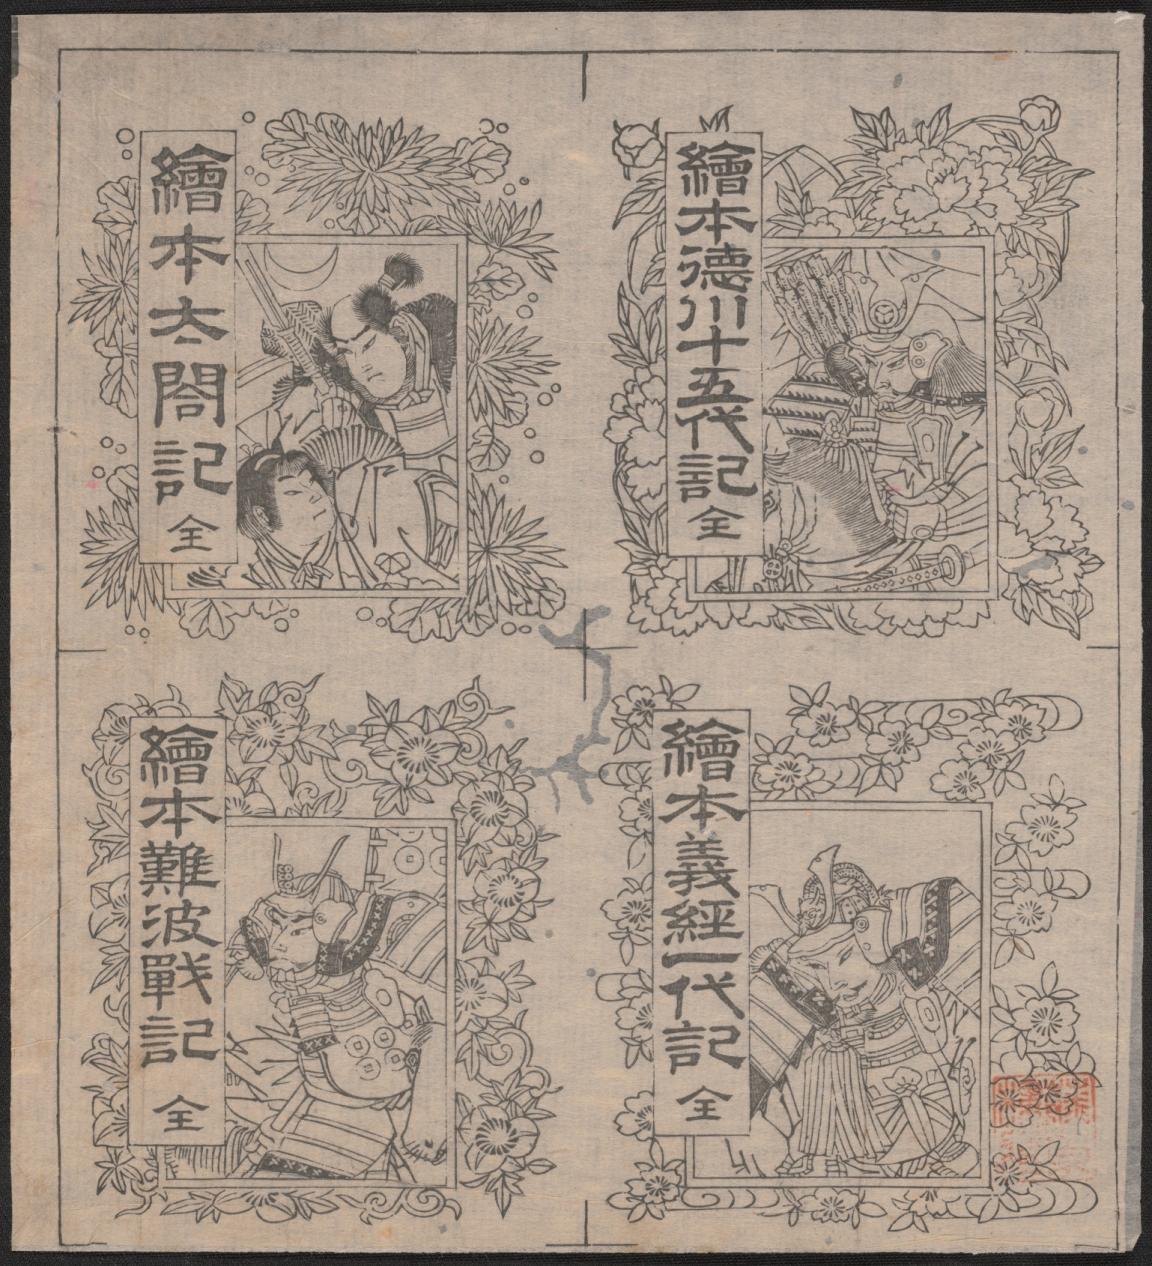 繪本德川十五代記 全
繪本太閤記 全
繪本義經一代記 全
繪本難波戰記 全